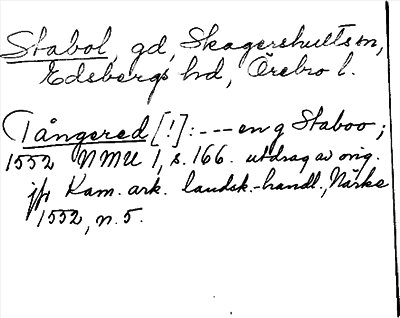 Stabol, gd, Skagershults sn,
Edsbergs hd, Örebro l.
Tångered [!]: --- en g Staboo ;
1552 NMU 1, s. 166. utdrag av orig.
jfr Kam. ark. landsk.-handl., Närke
1552, n. 5.